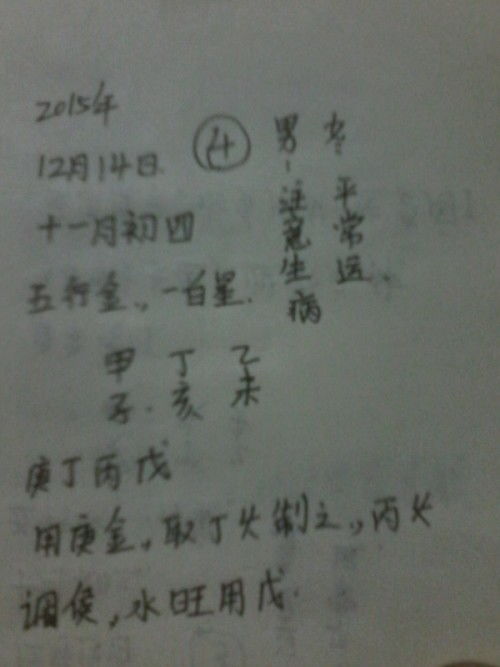 2015年
12月14日.
4
十一月初四
五行金,一白星.
男:注意生病
女:平常运.
甲 丁 乙
子. 亥 未
庚丁丙戊
用庚金,取丁火制之,丙火
调侯,水旺用戊.